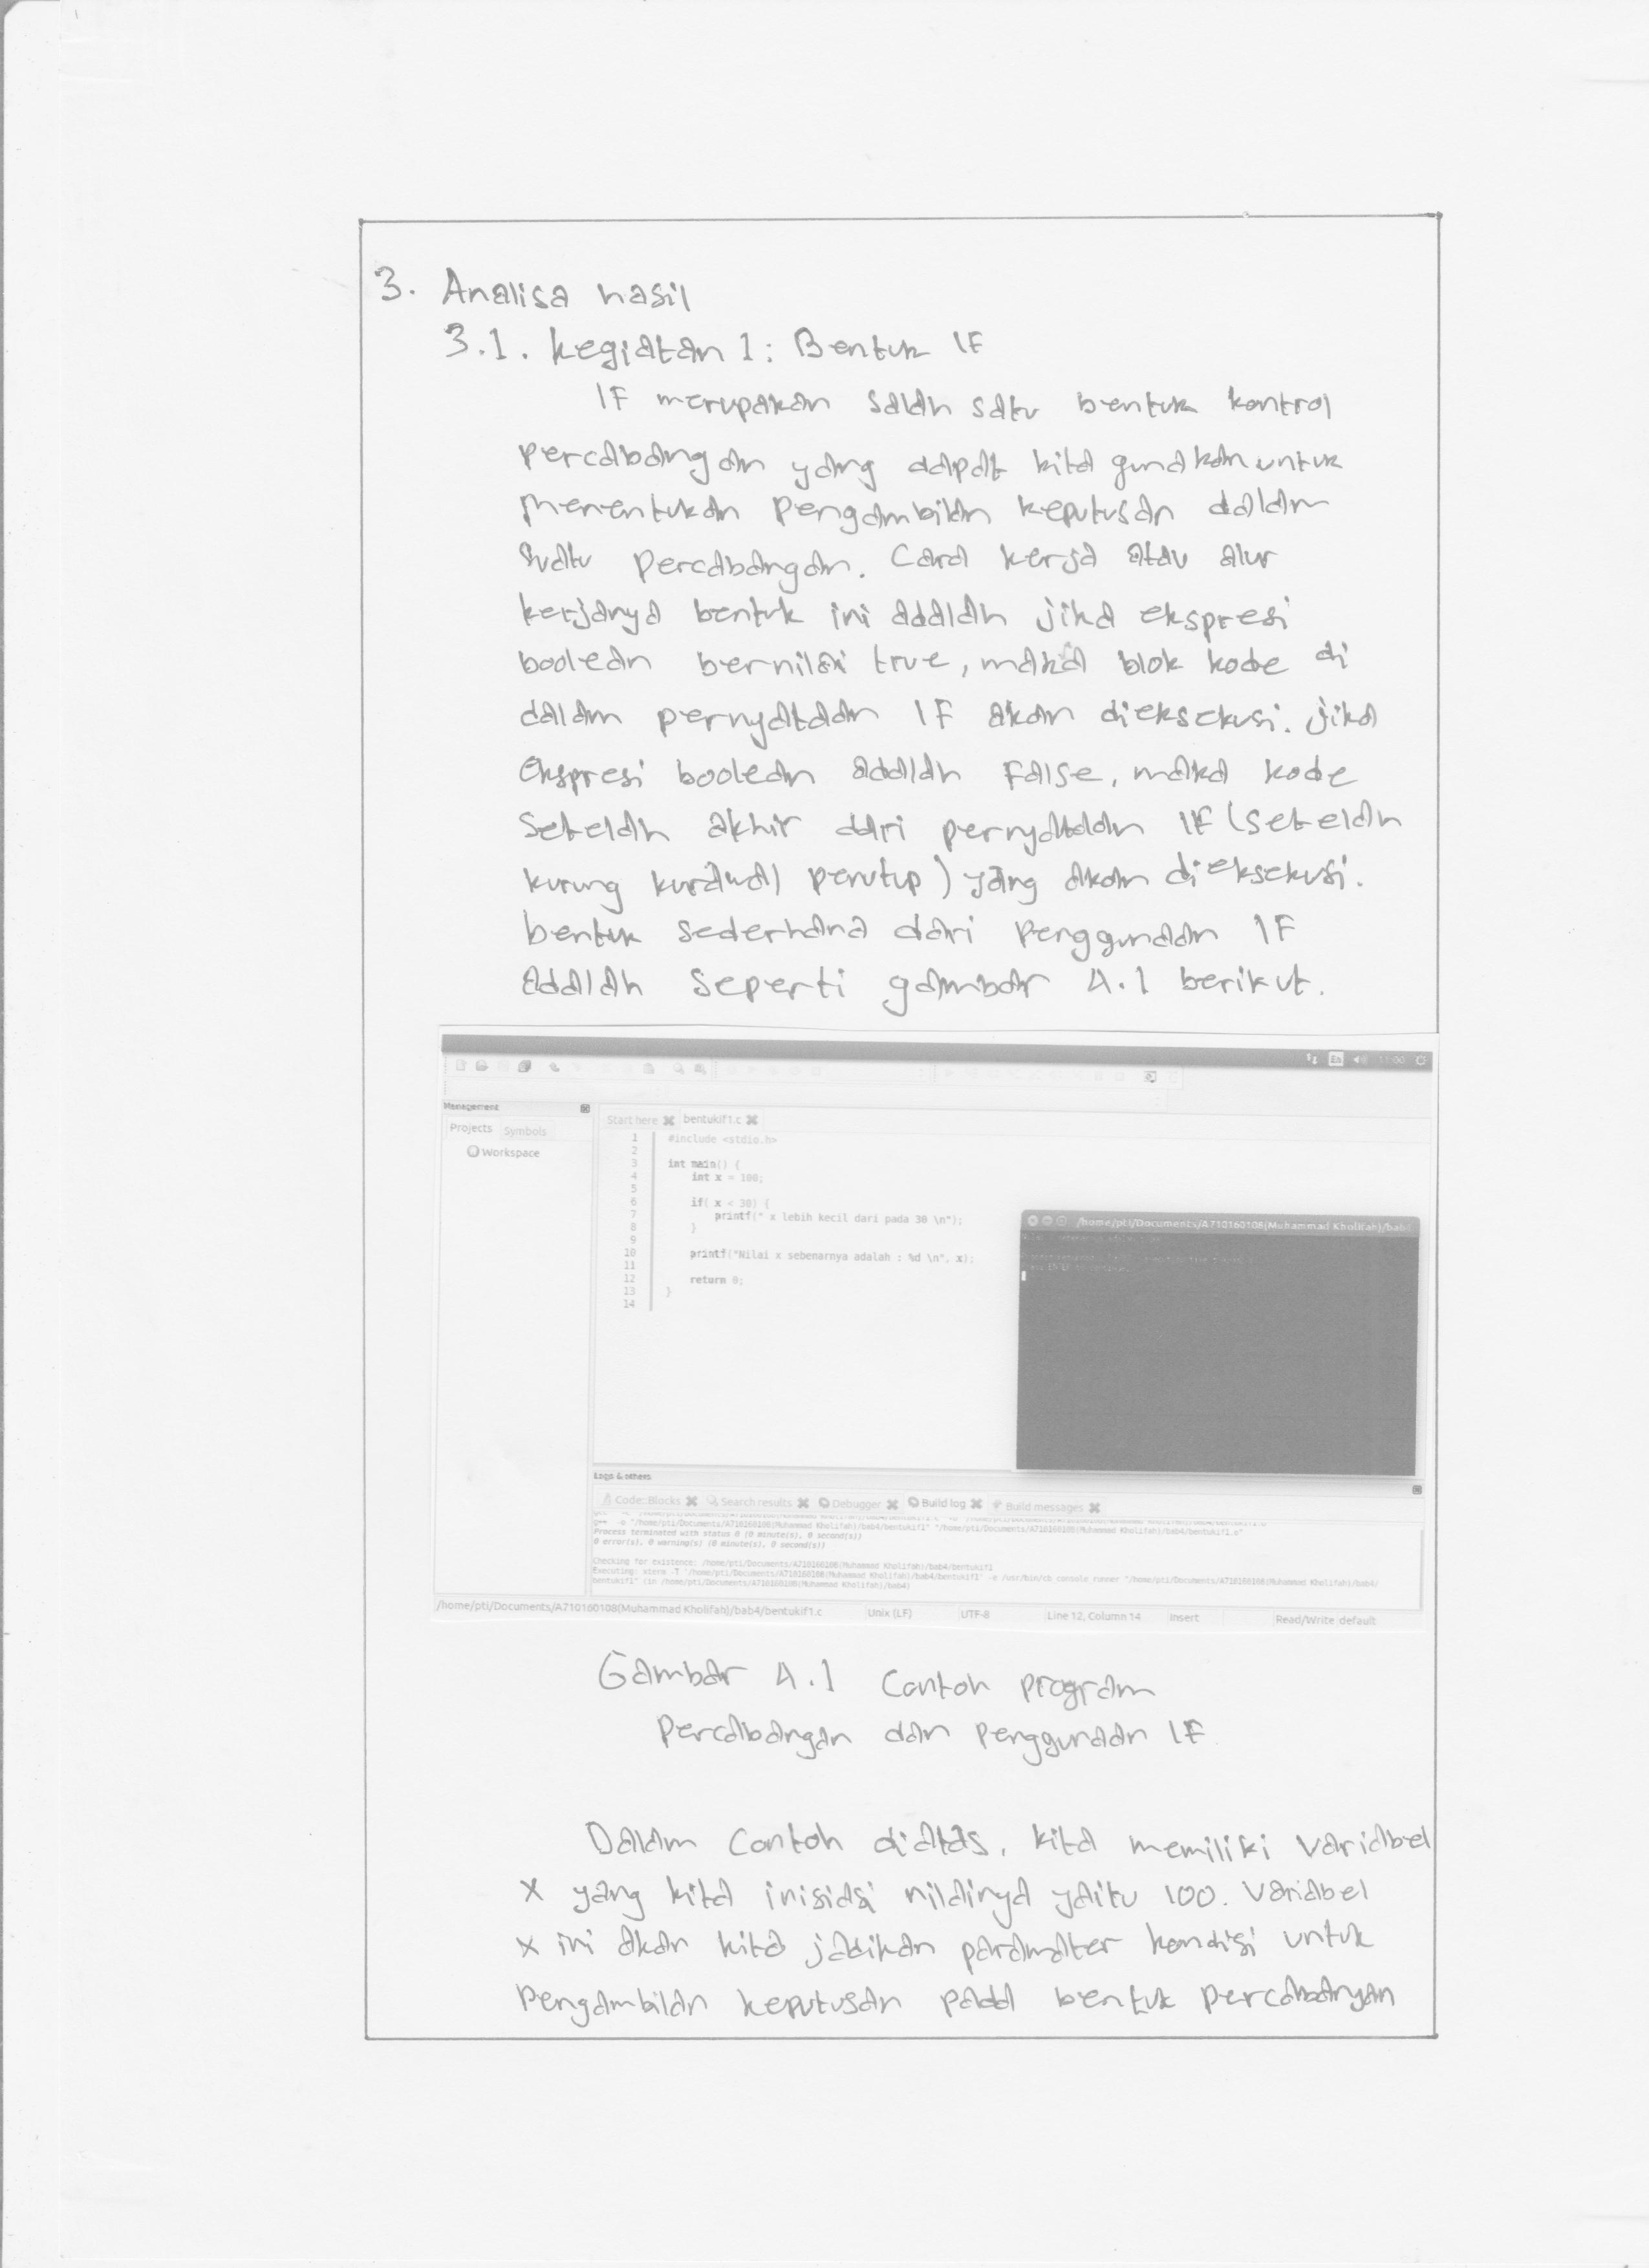 3. Analisa hasil
3.1. kegiatan 1: Bentuk IF
IF merupakan salah satu bentuk kontrol
percabangan yang dapat kita gunakan untuk
menentukan pengambilan keputusan dalam
suatu percabangan. Cara kerja atau alur
kerjanya bentuk ini adalah jika ekspresi
boolean bernilai true, maka blok kode di
dalam pernyataan IF akan dieksekusi. jika
ekspresi boolean adalah false, maka kode
setelah akhir dari pernyataan IF (setelah
kurung kurawal penutup) yang akan dieksekusi.
bentuk sederhana dari penggunaan IF
adalah seperti gambar 4.1 berikut.
En 11:00
Management
Projects Symbols
Workspace
Start here bentukif1.c
1 #include <stdio.h>
2
3 int main() {
4 int x = 100;
5
6 if( x < 30) {
7 printf(" x lebih kecil dari pada 30 \n");
8 }
9
10 printf("Nilai x sebenarnya adalah : %d \n", x);
11
12 return 0;
13 }
14
/home/pti/Documents/A710160108(Muhammad Kholifah)/bab4
Logs & others
Code::Blocks Search results Debugger Build log Build messages
g++ -o "/home/pti/Documents/A710160108(Muhammad Kholifah)/bab4/bentukif1" "/home/pti/Documents/A710160108(Muhammad Kholifah)/bab4/bentukif1.o"
Process terminated with status 0 (0 minute(s), 0 second(s))
0 error(s), 0 warning(s) (0 minute(s), 0 second(s))
Checking for existence: /home/pti/Documents/A710160108(Muhammad Kholifah)/bab4/bentukif1
Executing: xterm -T '/home/pti/Documents/A710160108(Muhammad Kholifah)/bab4/bentukif1' -e /usr/bin/cb_console_runner "/home/pti/Documents/A710160108(Muhammad Kholifah)/bab4/
bentukif1" (in /home/pti/Documents/A710160108(Muhammad Kholifah)/bab4)
/home/pti/Documents/A710160108(Muhammad Kholifah)/bab4/bentukif1.c Unix (LF) UTF-8 Line 12, Column 14 Insert Read/Write default
Gambar 4.1 Contoh program
percabangan dan penggunaan IF
Dalam contoh diatas, kita memiliki variabel
x yang kita inisiasi nilainya yaitu 100. Variabel
x ini akan kita jadikan paramater kondisi untuk
pengambilan keputusan pada bentuk percabangan